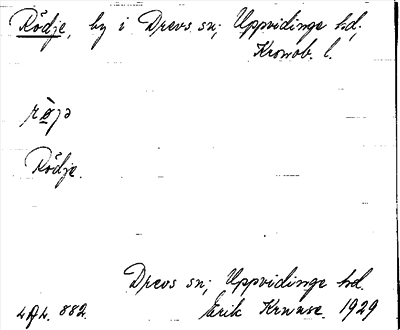 Rödje, by i Drevs sn; Uppvidinge hd,
Kronob. l.
Rödje.
Drevs sn; Uppvidinge hd.
882. Erik Kruuse. 1929